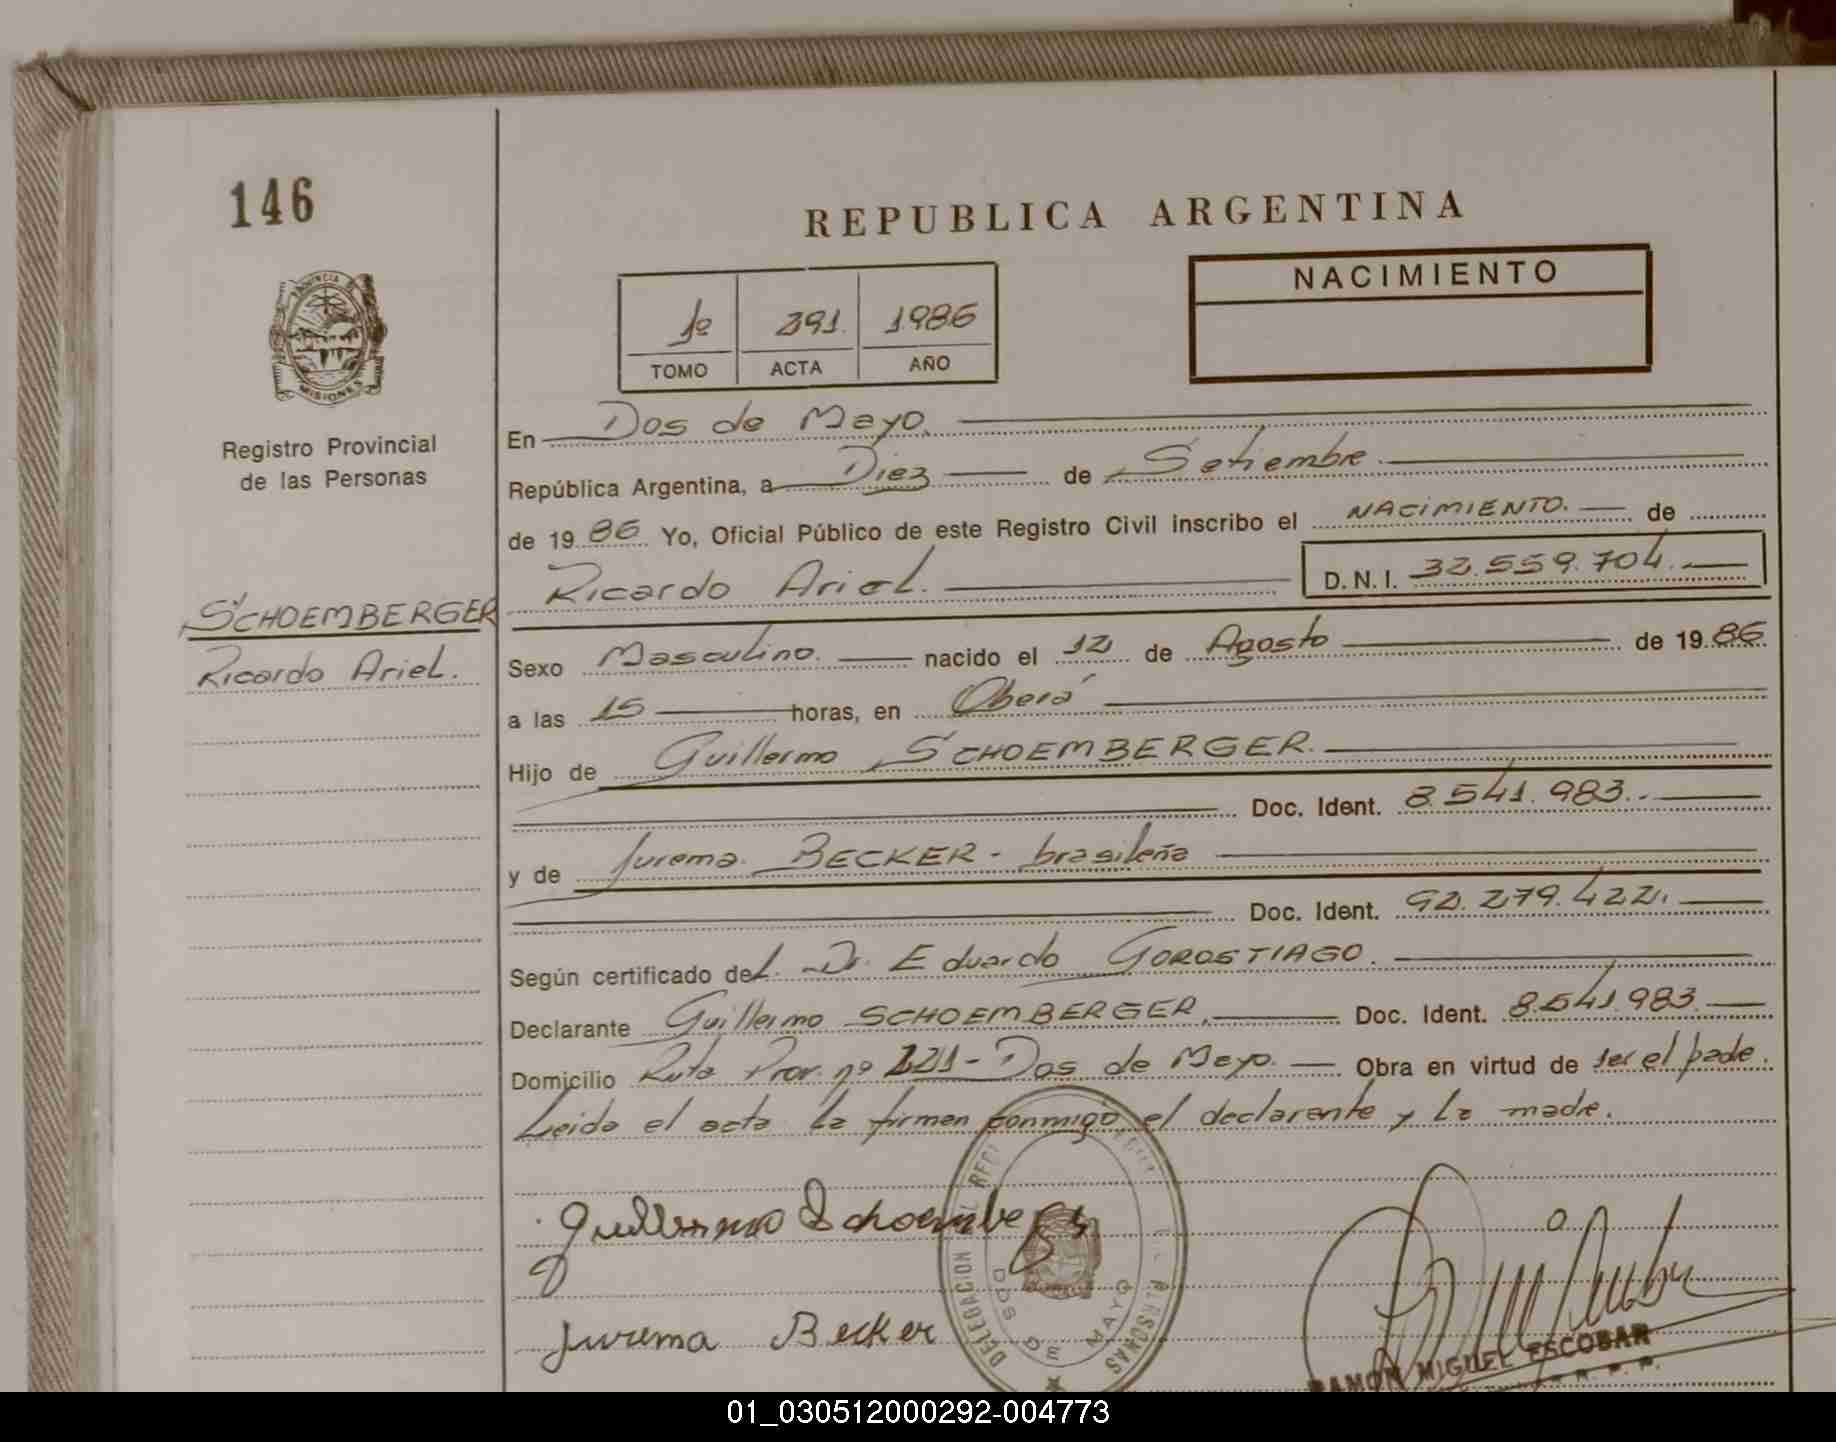 146
REPUBLICA ARGENTINA
NACIMIENTO
1º 291. 1986
TOMO ACTA AÑO
PROVINCIA DE
MISIONES
Registro Provincial
de las Personas
SCHOEMBERGER
Ricardo Ariel.
En Dos de Mayo.
República Argentina, a Diez de Setiembre.
de 1986 Yo, Oficial Público de este Registro Civil inscribo el NACIMIENTO. de
Ricardo Ariel. D.N.I. 32.559.704.
Sexo Masculino. nacido el 12 de Agosto de 1986.
a las 15 horas, en Oberá
Hijo de Guillermo SCHOEMBERGER.
Doc. Ident. 8.541.983.
y de Jurema. BECKER - brasileña
Doc. Ident. 92.279.422.
Según certificado del. Dr. Eduardo GOROSTIAGO.
Declarante Guillermo SCHOEMBERGER. Doc. Ident. 8.541.983.
Domicilio Ruta Prov. nº 221 - Dos de Mayo. Obra en virtud de ser el padre.
Leida el acta la firman conmigo el declarante y la madre.
Guillermo Schoemberger
Jurema Becker
DELEGACION
DOS DE MAYO
PERSONAS
RAMON MIGUEL ESCOBAR
01_030512000292-004773